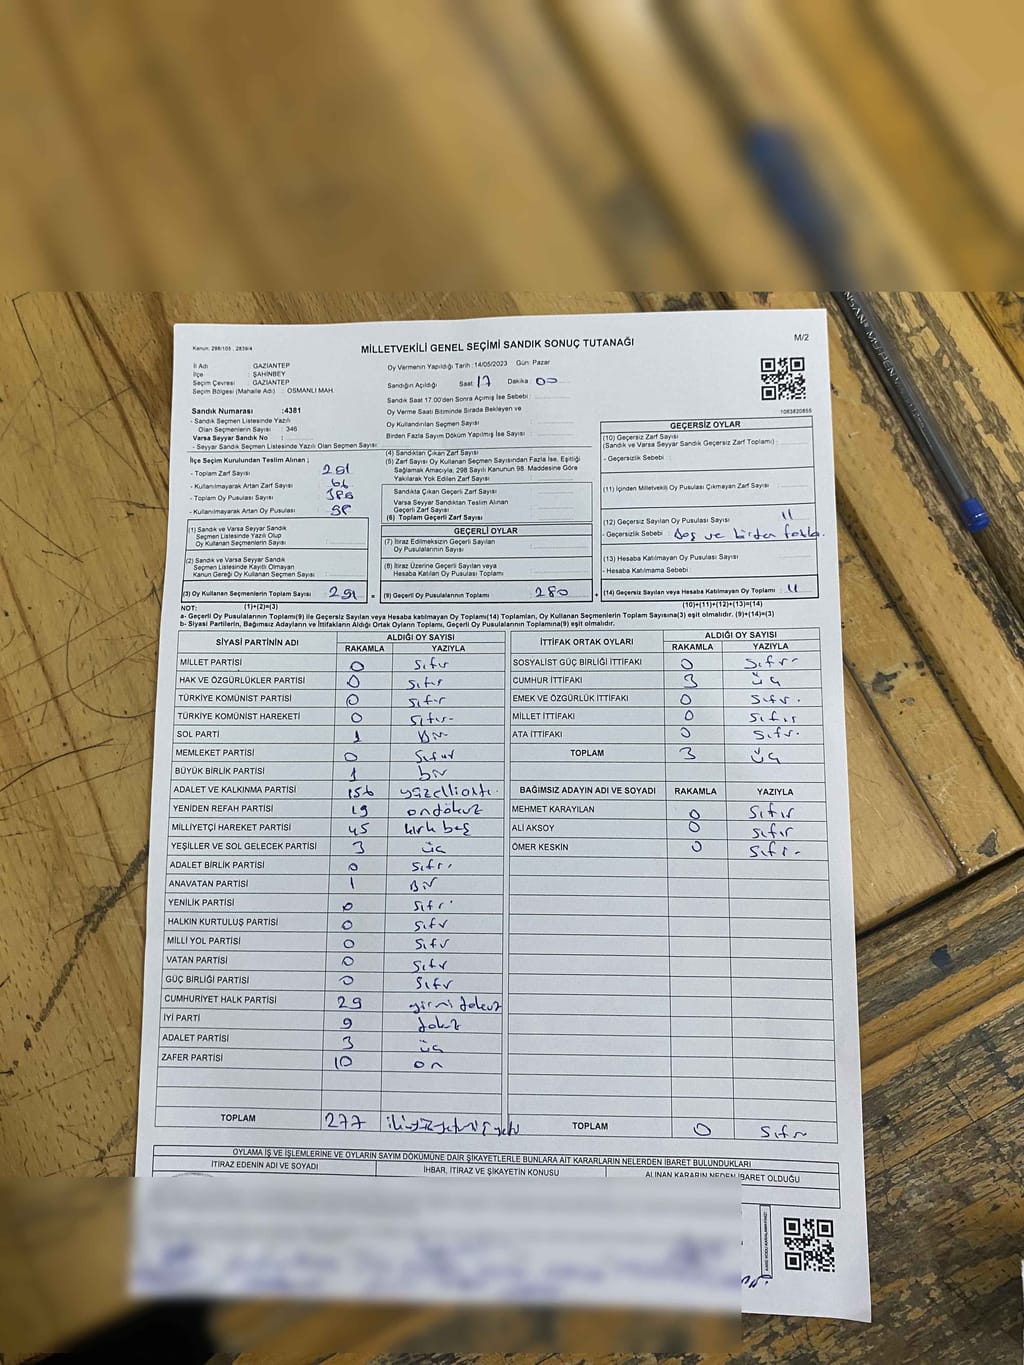 Kanun: 298/105 , 2839/4
MİLLETVEKİLİ GENEL SEÇİMİ SANDIK SONUÇ TUTANAĞI
M/2
İl Adı : GAZİANTEP
İlçe : ŞAHİNBEY
Seçim Çevresi : GAZİANTEP
Seçim Bölgesi (Mahalle Adı) : OSMANLI MAH.
Sandık Numarası :4381
- Sandık Seçmen Listesinde Yazılı
Olan Seçmenlerin Sayısı : 346
Varsa Seyyar Sandık No :
- Seyyar Sandık Seçmen Listesinde Yazılı Olan Seçmen Sayısı
Oy Vermenin Yapıldığı Tarih : 14/05/2023 Gün: Pazar
Sandığın Açıldığı Saat: 17 Dakika: 00
Sandık Saat 17.00'den Sonra Açılmış İse Sebebi :
Oy Verme Saati Bitiminde Sırada Bekleyen ve
Oy Kullandırılan Seçmen Sayısı :
Birden Fazla Sayım Döküm Yapılmış İse Sayısı :
1083820855
İlçe Seçim Kurulundan Teslim Alınan ;
- Toplam Zarf Sayısı :
- Kullanılmayarak Artan Zarf Sayısı : 66
- Toplam Oy Pusulası Sayısı :
- Kullanılmayarak Artan Oy Pusulası :
(1) Sandık ve Varsa Seyyar Sandık
Seçmen Listesinde Yazılı Olup
Oy Kullanan Seçmenlerin Sayısı :
(2) Sandık ve Varsa Seyyar Sandık
Seçmen Listesinde Kayıtlı Olmayan
Kanun Gereği Oy Kullanan Seçmen Sayısı :
(3) Oy Kullanan Seçmenlerin Toplam Sayısı : 291 =
(4) Sandıktan Çıkan Zarf Sayısı
(5) Zarf Sayısı Oy Kullanan Seçmen Sayısından Fazla İse, Eşitliği
Sağlamak Amacıyla, 298 Sayılı Kanunun 98. Maddesine Göre
Yakılarak Yok Edilen Zarf Sayısı :
Sandıkta Çıkan Geçerli Zarf Sayısı :
Varsa Seyyar Sandıktan Teslim Alınan
Geçerli Zarf Sayısı :
(6) Toplam Geçerli Zarf Sayısı
GEÇERLİ OYLAR
(7) İtiraz Edilmeksizin Geçerli Sayılan
Oy Pusulalarının Sayısı :
(8) İtiraz Üzerine Geçerli Sayılan veya
Hesaba Katılan Oy Pusulası Toplamı :
(9) Geçerli Oy Pusulalarının Toplamı : 280 +
GEÇERSİZ OYLAR
(10) Geçersiz Zarf Sayısı
(Sandık ve Varsa Seyyar Sandık Geçersiz Zarf Toplamı) :
- Geçersizlik Sebebi :
(11) İçinden Milletvekili Oy Pusulası Çıkmayan Zarf Sayısı :
(12) Geçersiz Sayılan Oy Pusulası Sayısı : 11
- Geçersizlik Sebebi : Boş ve birden fazla.
(13) Hesaba Katılmayan Oy Pusulası Sayısı :
- Hesaba Katılmama Sebebi :
(14) Geçersiz Sayılan veya Hesaba Katılmayan Oy Toplamı : 11
NOT: (1)+(2)=(3) (10)+(11)+(12)+(13)=(14)
a- Geçerli Oy Pusulalarının Toplamı(9) ile Geçersiz Sayılan veya Hesaba katılmayan Oy Toplamı(14) Toplamları, Oy Kullanan Seçmenlerin Toplam Sayısına(3) eşit olmalıdır. (9)+(14)=(3)
b- Siyasi Partilerin, Bağımsız Adayların ve İttifakların Aldığı Ortak Oyların Toplamı, Geçerli Oy Pusulalarının Toplamına(9) eşit olmalıdır.
SİYASİ PARTİNİN ADI ALDIĞI OY SAYISI
RAKAMLA YAZIYLA
MİLLET PARTİSİ 0 Sıfır
HAK VE ÖZGÜRLÜKLER PARTİSİ 0 Sıfır
TÜRKİYE KOMÜNİST PARTİSİ 0 Sıfır
TÜRKİYE KOMÜNİST HAREKETİ 0 Sıfır
SOL PARTİ 1 Bir
MEMLEKET PARTİSİ 0 Sıfır
BÜYÜK BİRLİK PARTİSİ 1 bir
ADALET VE KALKINMA PARTİSİ 156 yüzellialtı
YENİDEN REFAH PARTİSİ 19 ondokuz
MİLLİYETÇİ HAREKET PARTİSİ 45 kırk beş
YEŞİLLER VE SOL GELECEK PARTİSİ 3 üç
ADALET BİRLİK PARTİSİ 0 Sıfır
ANAVATAN PARTİSİ 1 Bir
YENİLİK PARTİSİ 0 Sıfır
HALKIN KURTULUŞ PARTİSİ 0 Sıfır
MİLLİ YOL PARTİSİ 0 Sıfır
VATAN PARTİSİ 0 Sıfır
GÜÇ BİRLİĞİ PARTİSİ 0 Sıfır
CUMHURİYET HALK PARTİSİ 29 yirmi dokuz
İYİ PARTİ 9 dokuz
ADALET PARTİSİ 3 üç
ZAFER PARTİSİ 10 on
TOPLAM 277 ikiyüzyetmişyedi
İTTİFAK ORTAK OYLARI ALDIĞI OY SAYISI
RAKAMLA YAZIYLA
SOSYALİST GÜÇ BİRLİĞİ İTTİFAKI 0 Sıfır
CUMHUR İTTİFAKI 3 üç
EMEK VE ÖZGÜRLÜK İTTİFAKI 0 Sıfır.
MİLLET İTTİFAKI 0 Sıfır
ATA İTTİFAKI 0 Sıfır.
TOPLAM 3 üç
BAĞIMSIZ ADAYIN ADI VE SOYADI RAKAMLA YAZIYLA
MEHMET KARAYILAN 0 Sıfır
ALİ AKSOY 0 Sıfır
ÖMER KESKİN 0 Sıfır
TOPLAM 0 Sıfır
OYLAMA İŞ VE İŞLEMLERİNE VE OYLARIN SAYIM DÖKÜMÜNE DAİR ŞİKAYETLERLE BUNLARA AİT KARARLARIN NELERDEN İBARET BULUNDUKLARI
İTİRAZ EDENİN ADI VE SOYADI İHBAR, İTİRAZ VE ŞİKAYETİN KONUSU ALINAN KARARIN NEDEN İBARET OLDUĞU